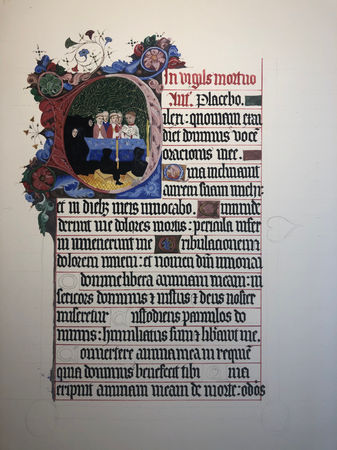 In vigils mortuo
Ant. Placebo.
ilexi: quoniam exau
diet dominus vocē
orationis mee.
uia inclinauit
aurem suam michi:
et in diebz meis inuocabo. ircumd
derunt me dolores mortis: pericula infer
inuenerunt me Tribulationem
dolorem inueni: et nomen dn̄i inuocaui
domine libera animam meam: mi
sericors dominus ⁊ iustus ⁊ deus noster
miseretur ustodiens paruulos do
minus: humiliatus sum ⁊ lib̄auit me.
onuertere anima mea in requiē
quia dominus benefecit tibi uia
eripuit animam meam de morte: